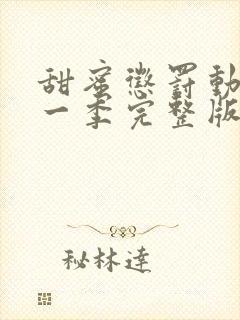 甜蜜懲罰動
一季完整版
秘林達